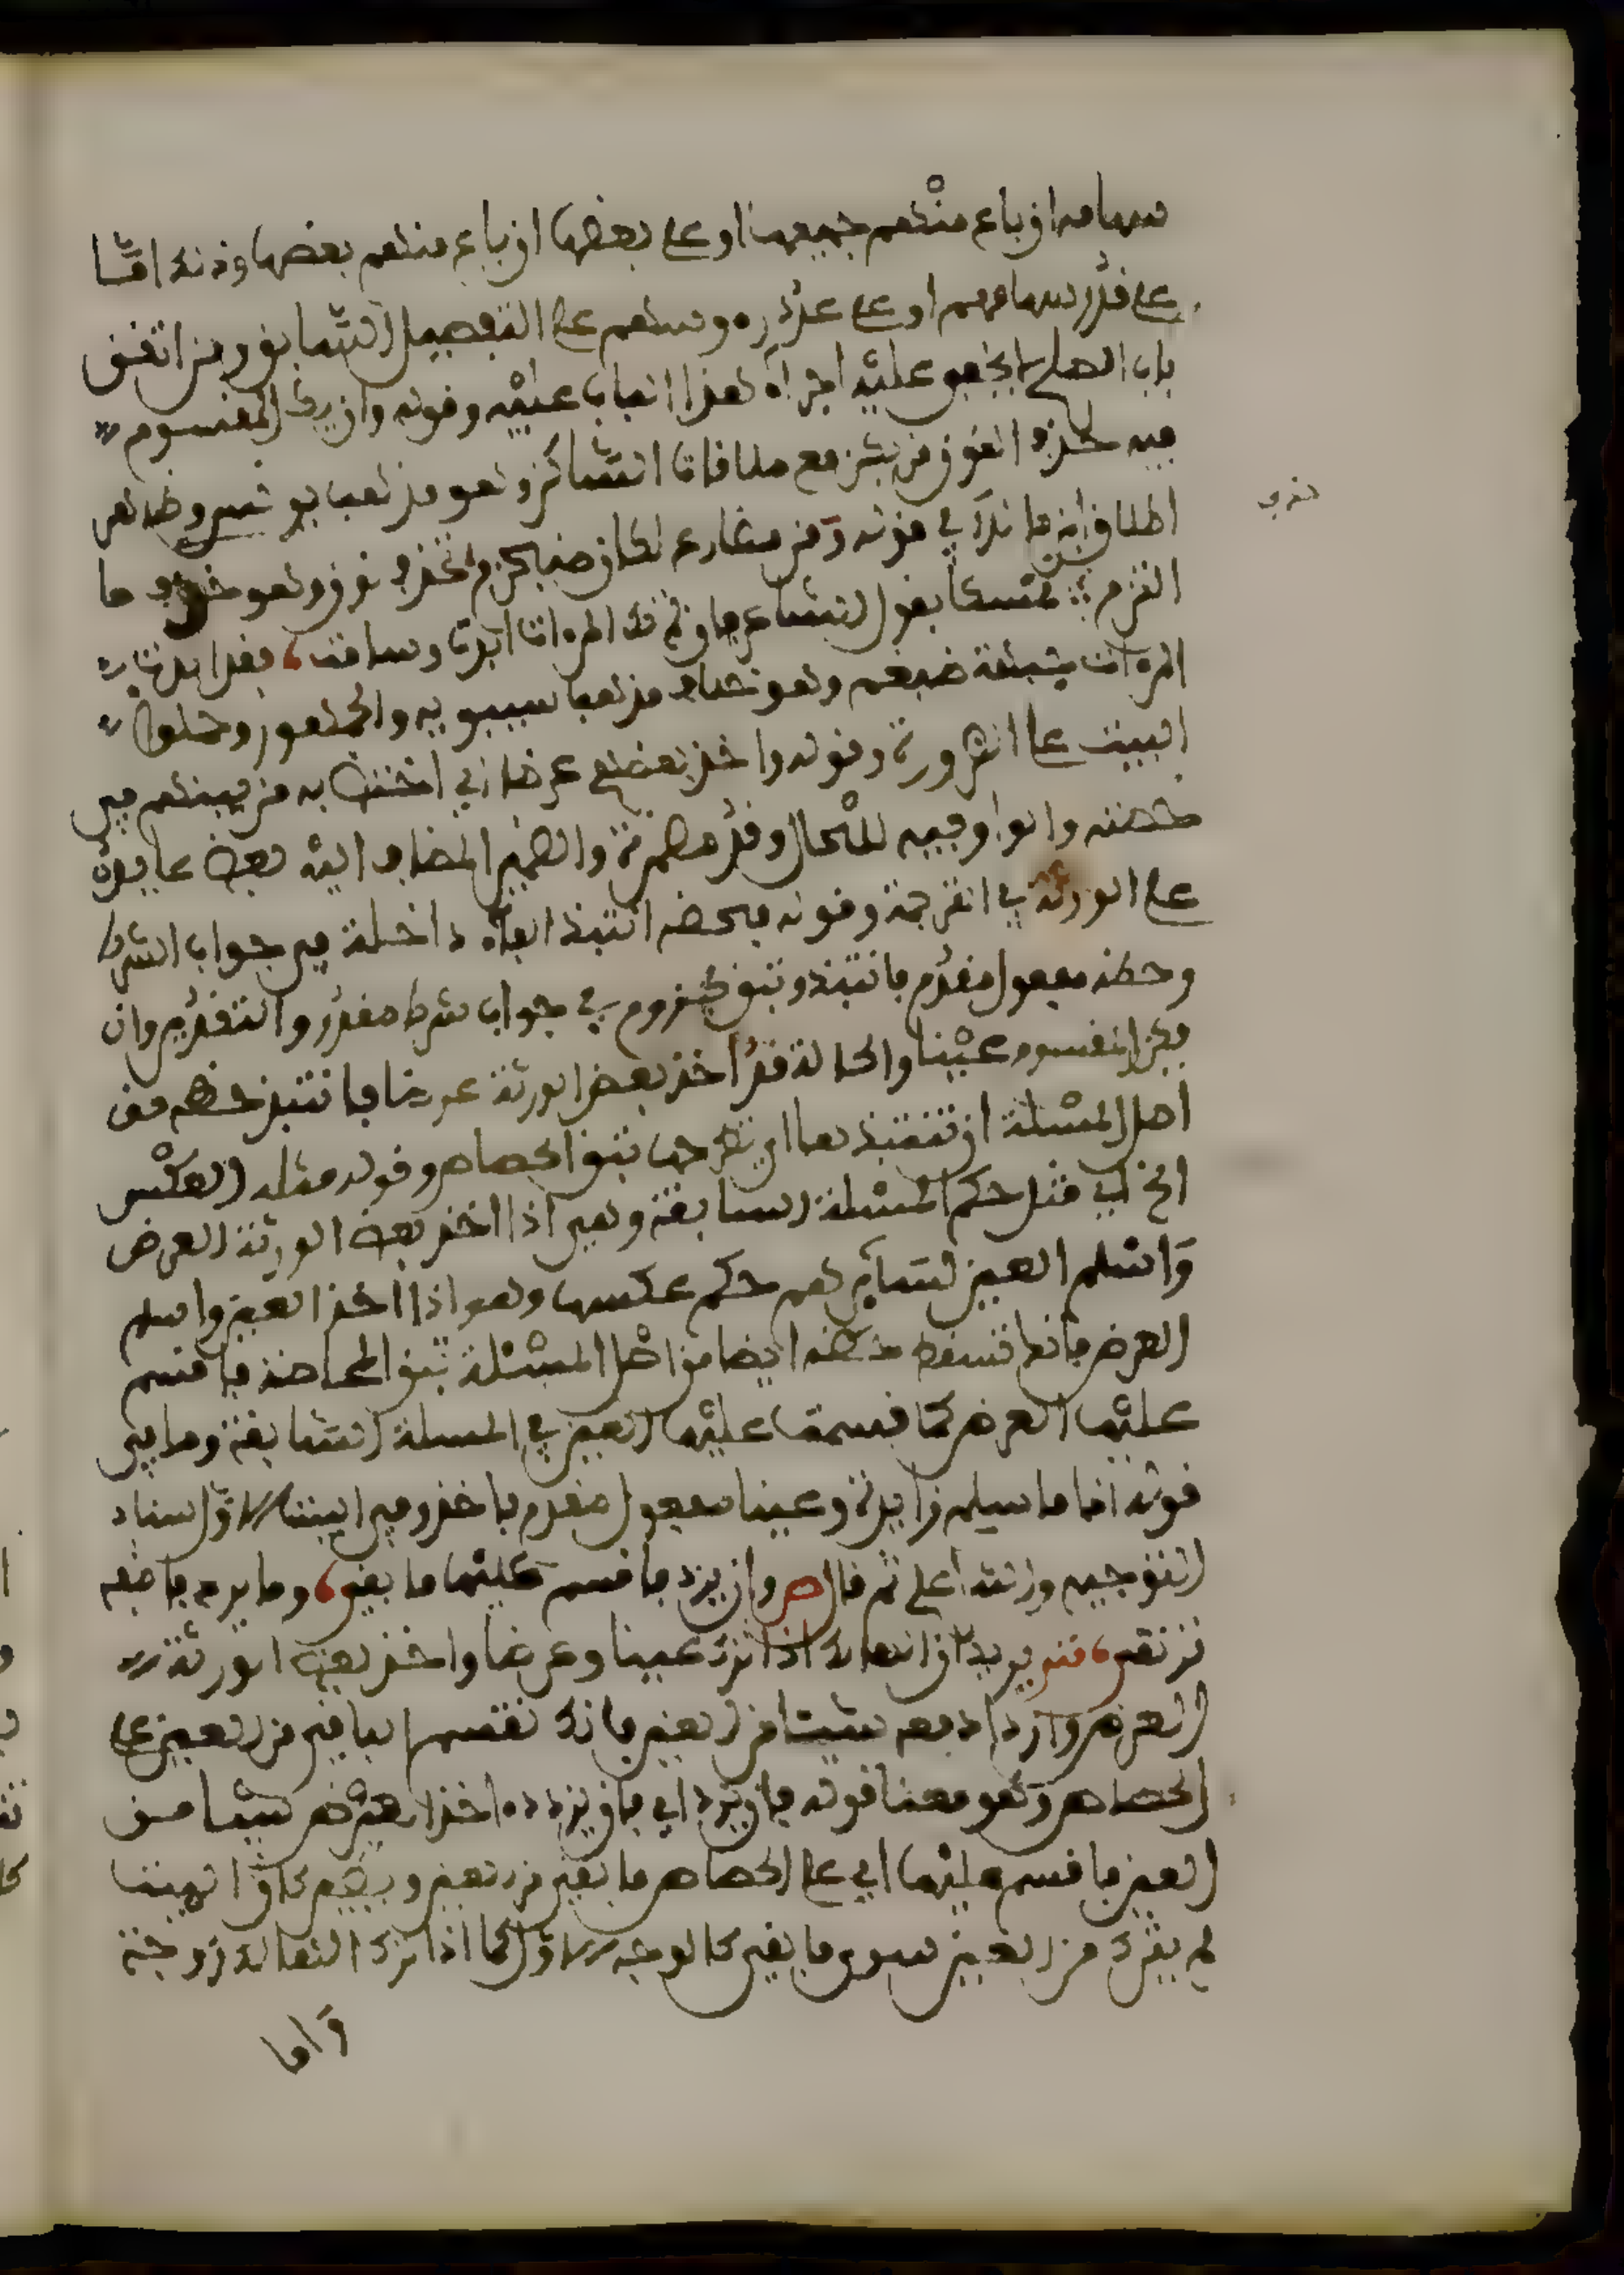 سهامه او باع منهم جميعها او على بعضها او باع منهم بعضها وذلك اما
على قدر سهامهم او على عدد رءوسهم على التفصيل السابق ومن اتقن
باب الصلح لا يخفى عليه اجراء هذا الباب عليه وقوله وان يك المقسوم
فيه حذف النون من يكن مع ملاقات الساكن وهو مذهب يونس وظاهر
اطلاق ابن مالك في قوله ومن مضارع لكان منجزم تحذف نون وهو حذف ما
التزم تمسكا بقول الشاعر فان لم تك المرءات ابدت وسامة فقد ابدت
المرءات جبهة ضيغم وهو خلاف مذهب سيبويه والجمهور وحملوا
البيت على الضرورة وقوله واخذ بعضهم عرضا اي اختص به من بينهم في
حصته والواو فيه للحال وقد مضمرة والضمير المضاف اليه بعض عايد
على الورثة في الترجمة وقوله فحظه انتبذ الفاء داخلة في جواب الشرط
وحظه مفعول مقدم بانتبذ وتبق مجزوم في جواب شرط مقدر والتقدير وان
يكن المقسوم عينا والحالة قد اخذ بعض الورثة عرضا فانتبذ حظه من
اصل المسئلة ان تنتبذها اي تطرحها تبق الحصاص وقوله مثله العكس
الخ اي مثل حكم المسئلة السابقة وهي اذا اخذ بعض الورثة العرض
واسلم العين لسايرهم حكم عكسها وهو اذا اخذ العين واسلم
العرض فانك تسقط حظه ايضا من اصل المسئلة تبق المحاصة فاقسم
عليها العرض كما قسمت عليها العين في المسئلة السابقة وما في
قوله اما ما سيلم زايدة وعينا مفعول مقدم باخذ وفي البيت الاول سناد
التوجيه والله اعلم ثم قال ص وان يزد فاقسم عليها ما بقي، وما يرد فاضفه
ترتقي، ش يريد ان الهالك اذا ترك عينا وعرضا واخذ بعض الورثة
العرض وازداد معه شيئا من العين فانك تقسم الباقي من العين على
الحصاص وهو معنا قوله فان يزد اي فان يزدد ءاخذ العرض شيئا من
العين فاقسم عليها اي على الحصاص ما بقي من العين ويصير كان الميت
لم يترك من العين سوى ما بقي كالوجه الاول كما اذا ترك الهالك زوجة
واما